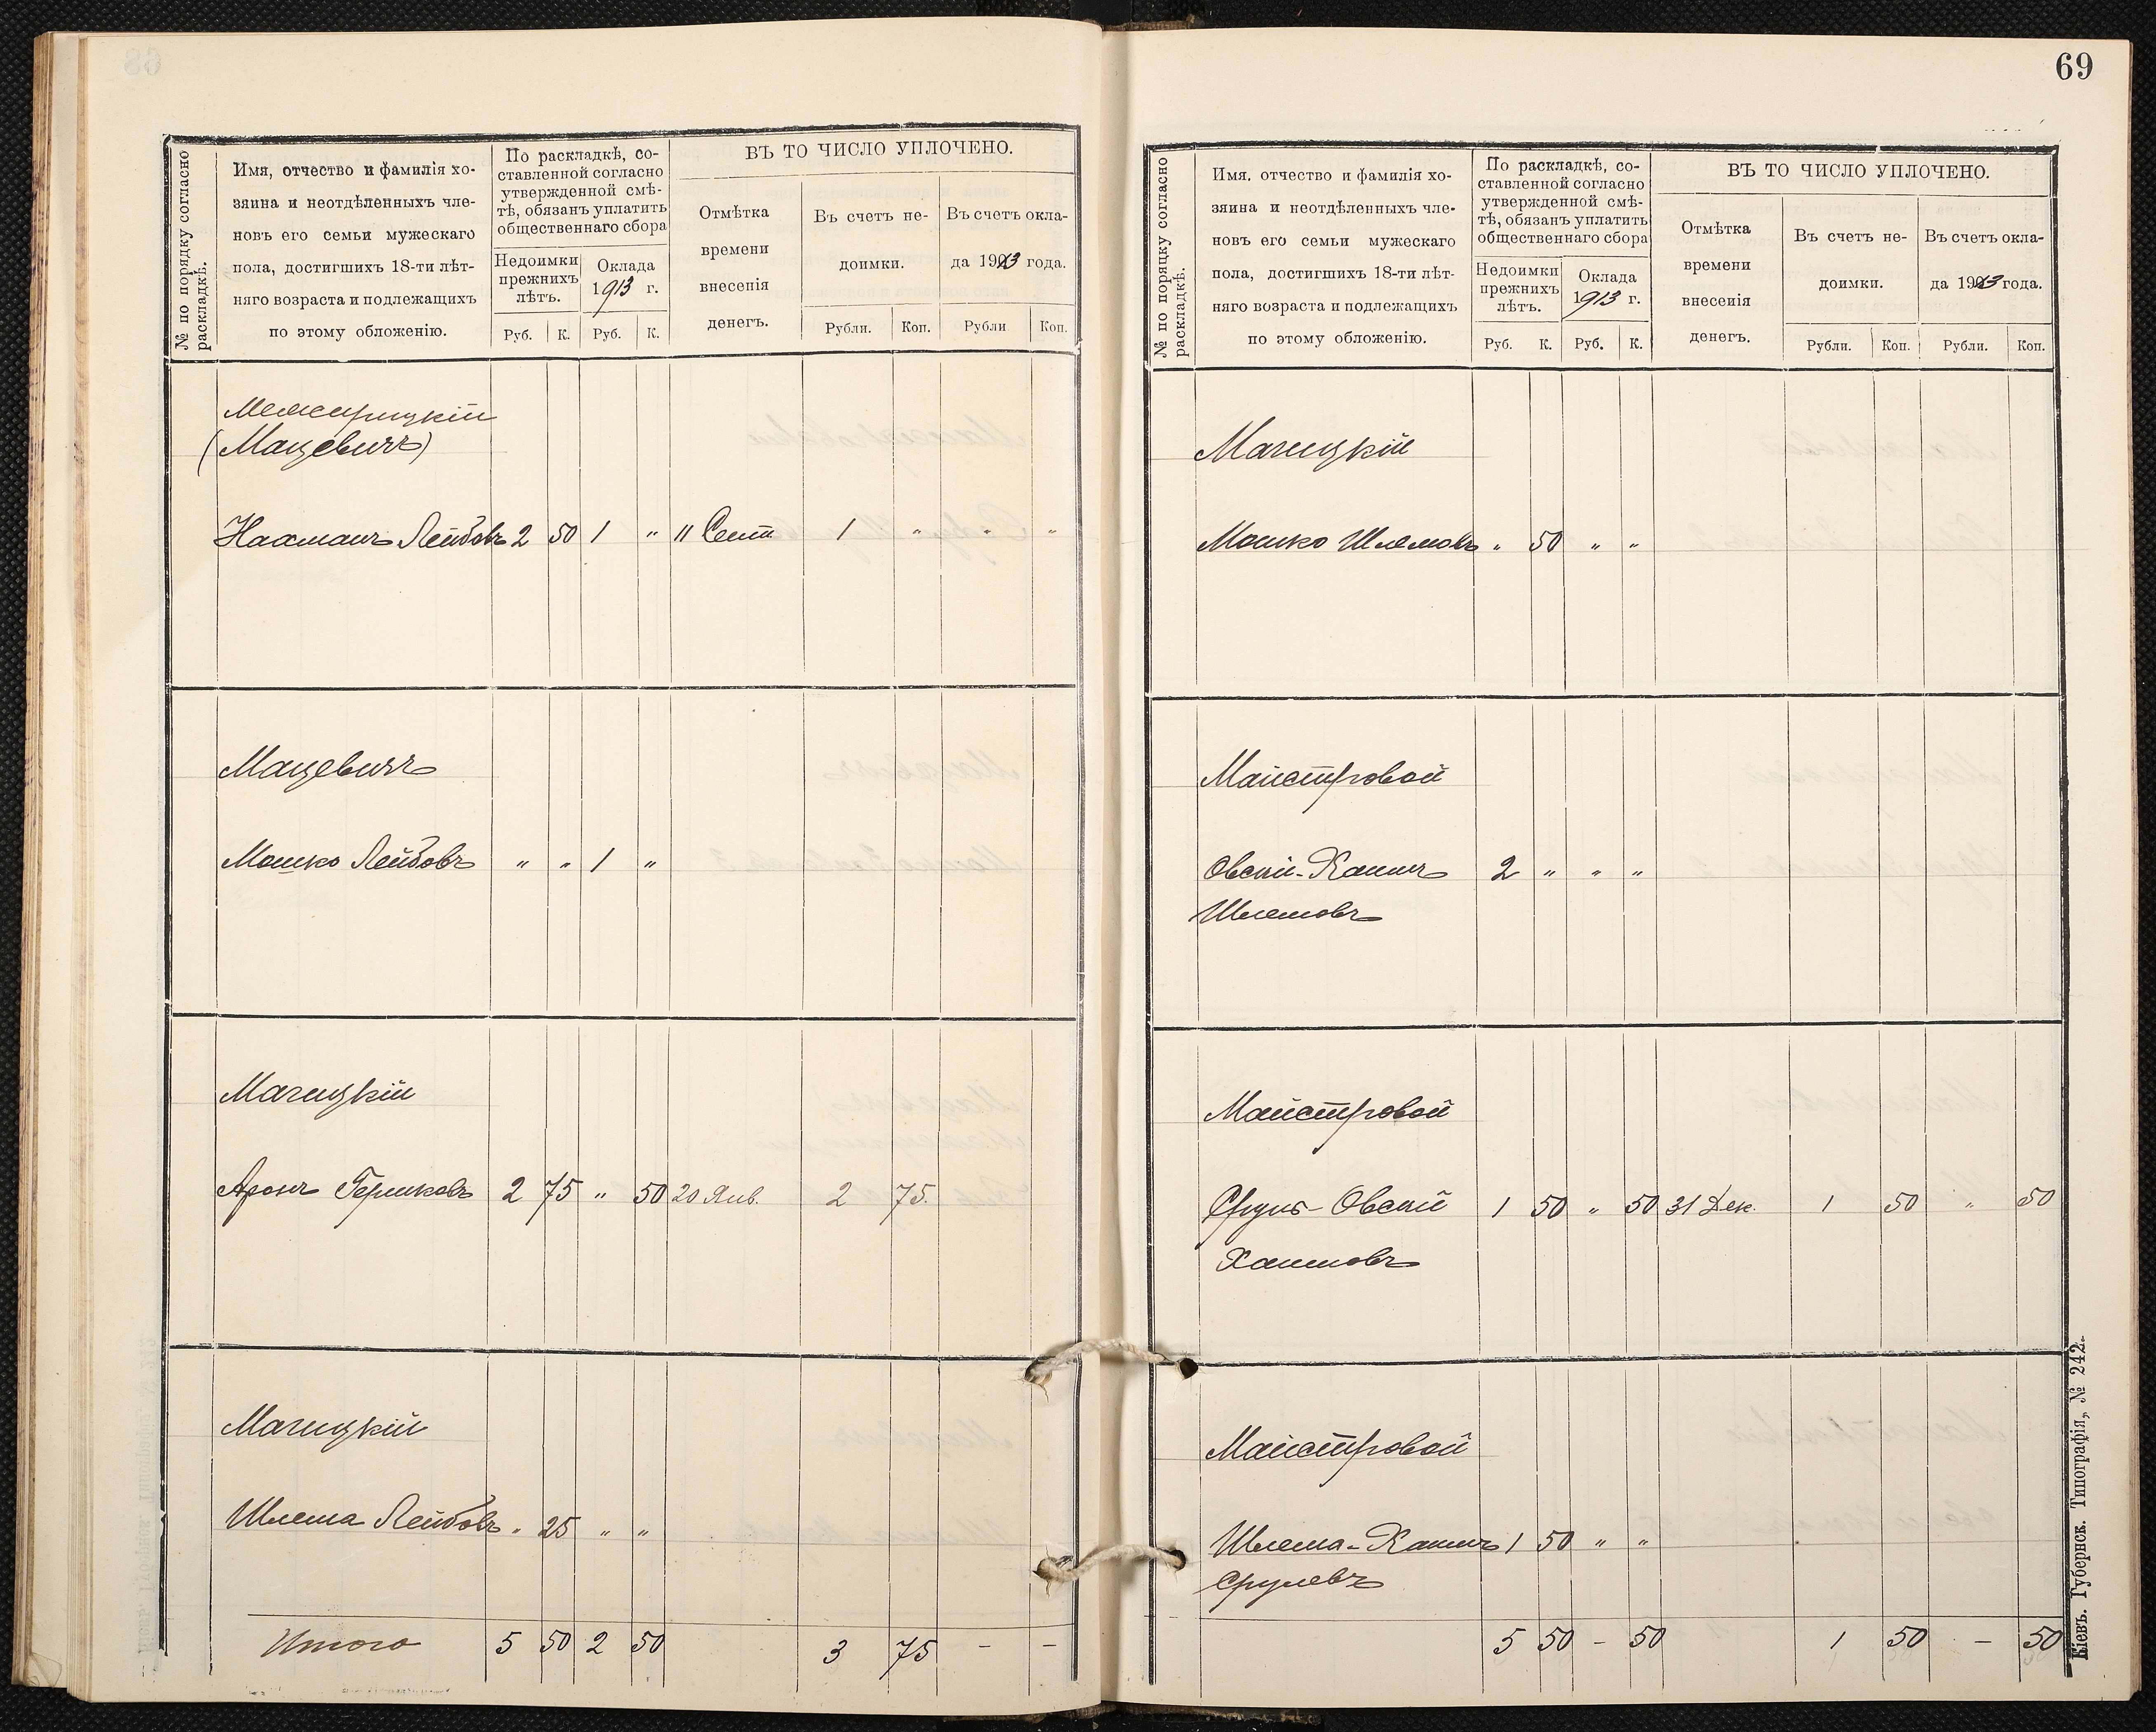 № по порядку согласно
раскладкѣ.
Имя, отчество и фамилія хо-
зяина и неотдѣленныхъ чле-
новъ его семьи мужескаго
пола, достигшихъ 18-ти лѣт-
няго возраста и подлежащихъ
по этому обложенію.
По раскладкѣ, со-
ставленной согласно
утвержденной смѣ-
тѣ, обязанъ уплатить
общественнаго сбора
Недоимки
прежнихъ
лѣтъ.
Оклада
1913 г.
Руб. К. Руб. К.
ВЪ ТО ЧИСЛО УПЛОЧЕНО.
Отмѣтка
времени
внесенія
денегъ.
Въ счетъ не-
доимки.
Въ счетъ окла-
да 1913 года.
Рубли. Коп. Рубли Коп.
Межирицкій
(Мацевичъ)
Нахманъ Лейбовъ 2 50 1 " 11 Сент 1 " " "
Мацевичъ
Мошко Лейбовъ " " 1 "
Мачицкій
Аронъ Гершковъ 2 75 " 50 20 Янв. 2 75.
Мачицкій
Шлема Лейбовъ " 25 " "
Итого 5 50 2 50 3 75 - -
69
№ по поряцку согласно
раскладкѣ.
Имя, отчество и фамилія хо-
зяина и неотдѣленныхъ чле-
новъ его семьи мужескаго
пола, достигшихъ 18-ти лѣт-
няго возраста и подлежащихъ
по этому обложенію.
По раскладкѣ, со-
ставленной согласно
утвержденной смѣ-
тѣ, обязанъ уплатить
общественнаго сбора
Недоимки
прежнихъ
лѣтъ.
Оклада
1913 г.
Руб. К. Руб. К.
ВЪ ТО ЧИСЛО УПЛОЧЕНО.
Отмѣтка
времени
внесенія
денегъ.
Въ счетъ не-
доимки.
Въ счетъ окла-
да 1913 года.
Рубли. Коп. Рубли. Коп.
Мачицкій
Мошко Шлемовъ " 50 " "
Майстровой
Овсій-Хаимъ 2 " " "
Шлемовъ
Майстровой
Сруль-Овсій 1 50 " 50 31 Дек. 1 50 " 50
Хаимовъ
Майстровой
Шлема-Хаимъ 1 50 " "
Срулевъ
5 50 - 50 1 50 - 50
Кіевъ. Губернск. Типографія, № 242.